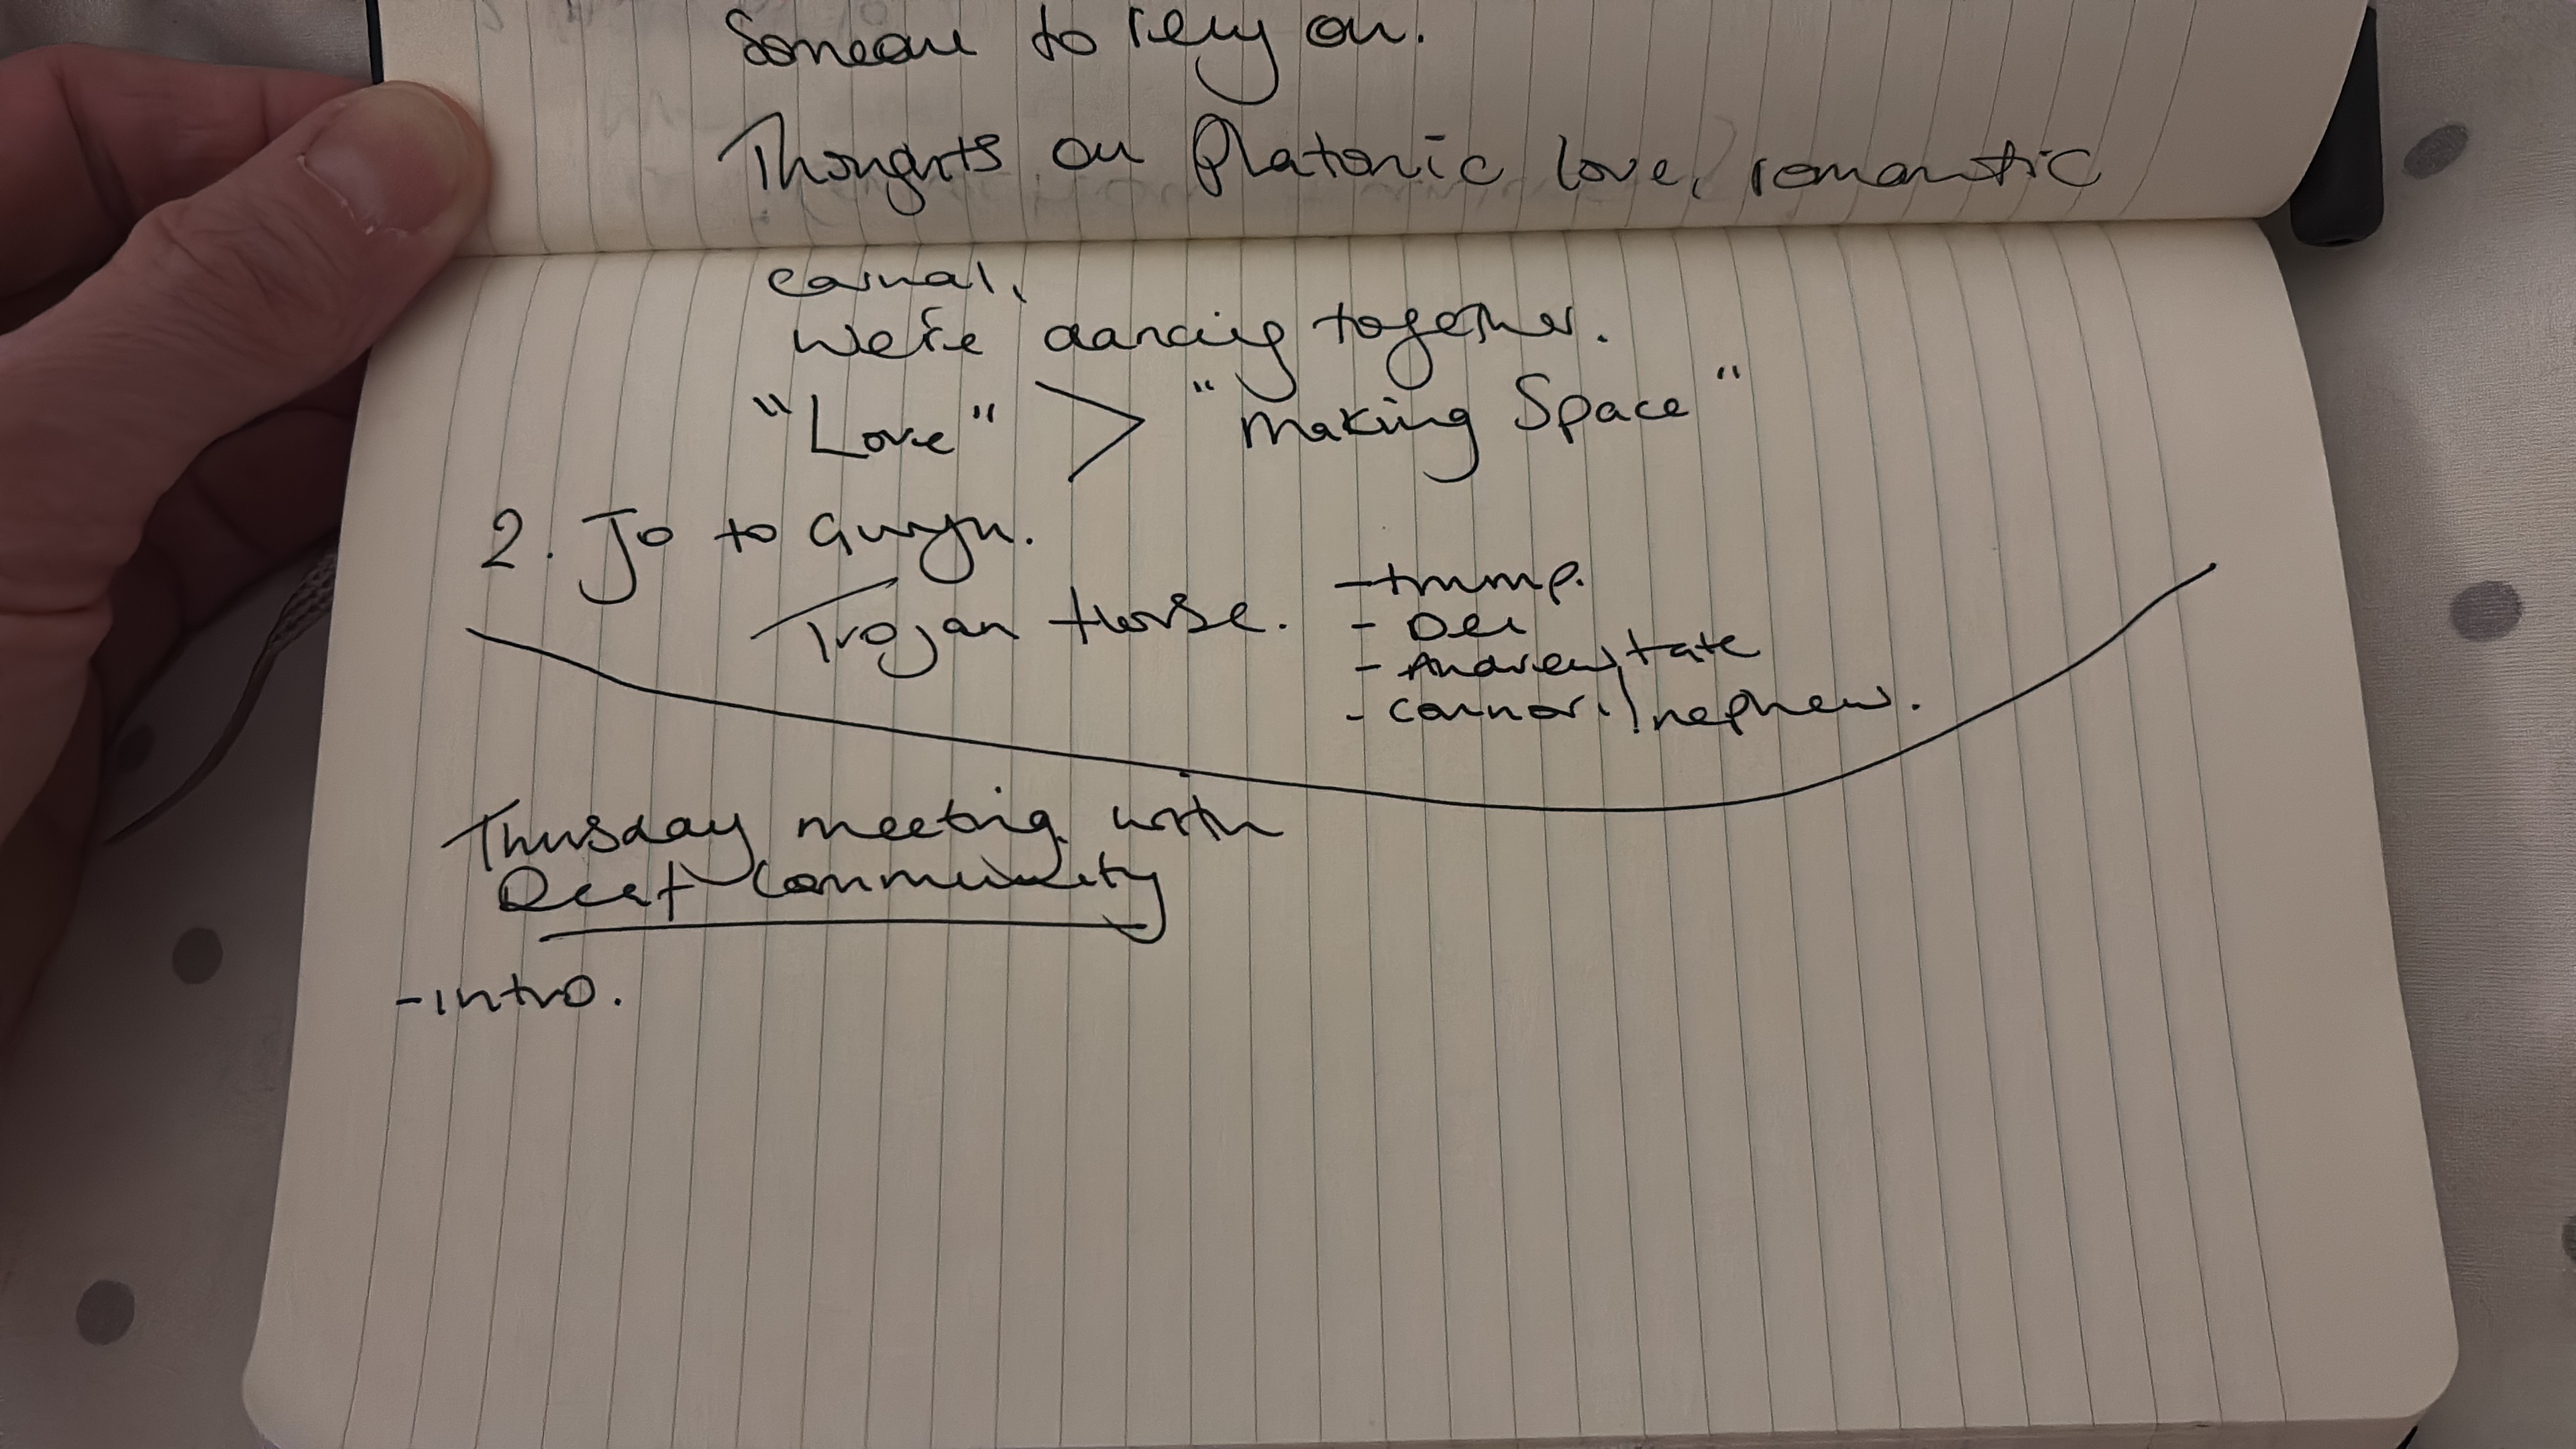 Someone to rely on.
Thoughts on Platonic love, romantic
carnal.
We're dancing together.
"Love" > "Making Space"
2. Jo to Gwyn.
Trojan Horse.
- trump.
- Dei
- Andrew tate
- connor. / nephew.
Thursday meeting with
Deaf Community
- intro.